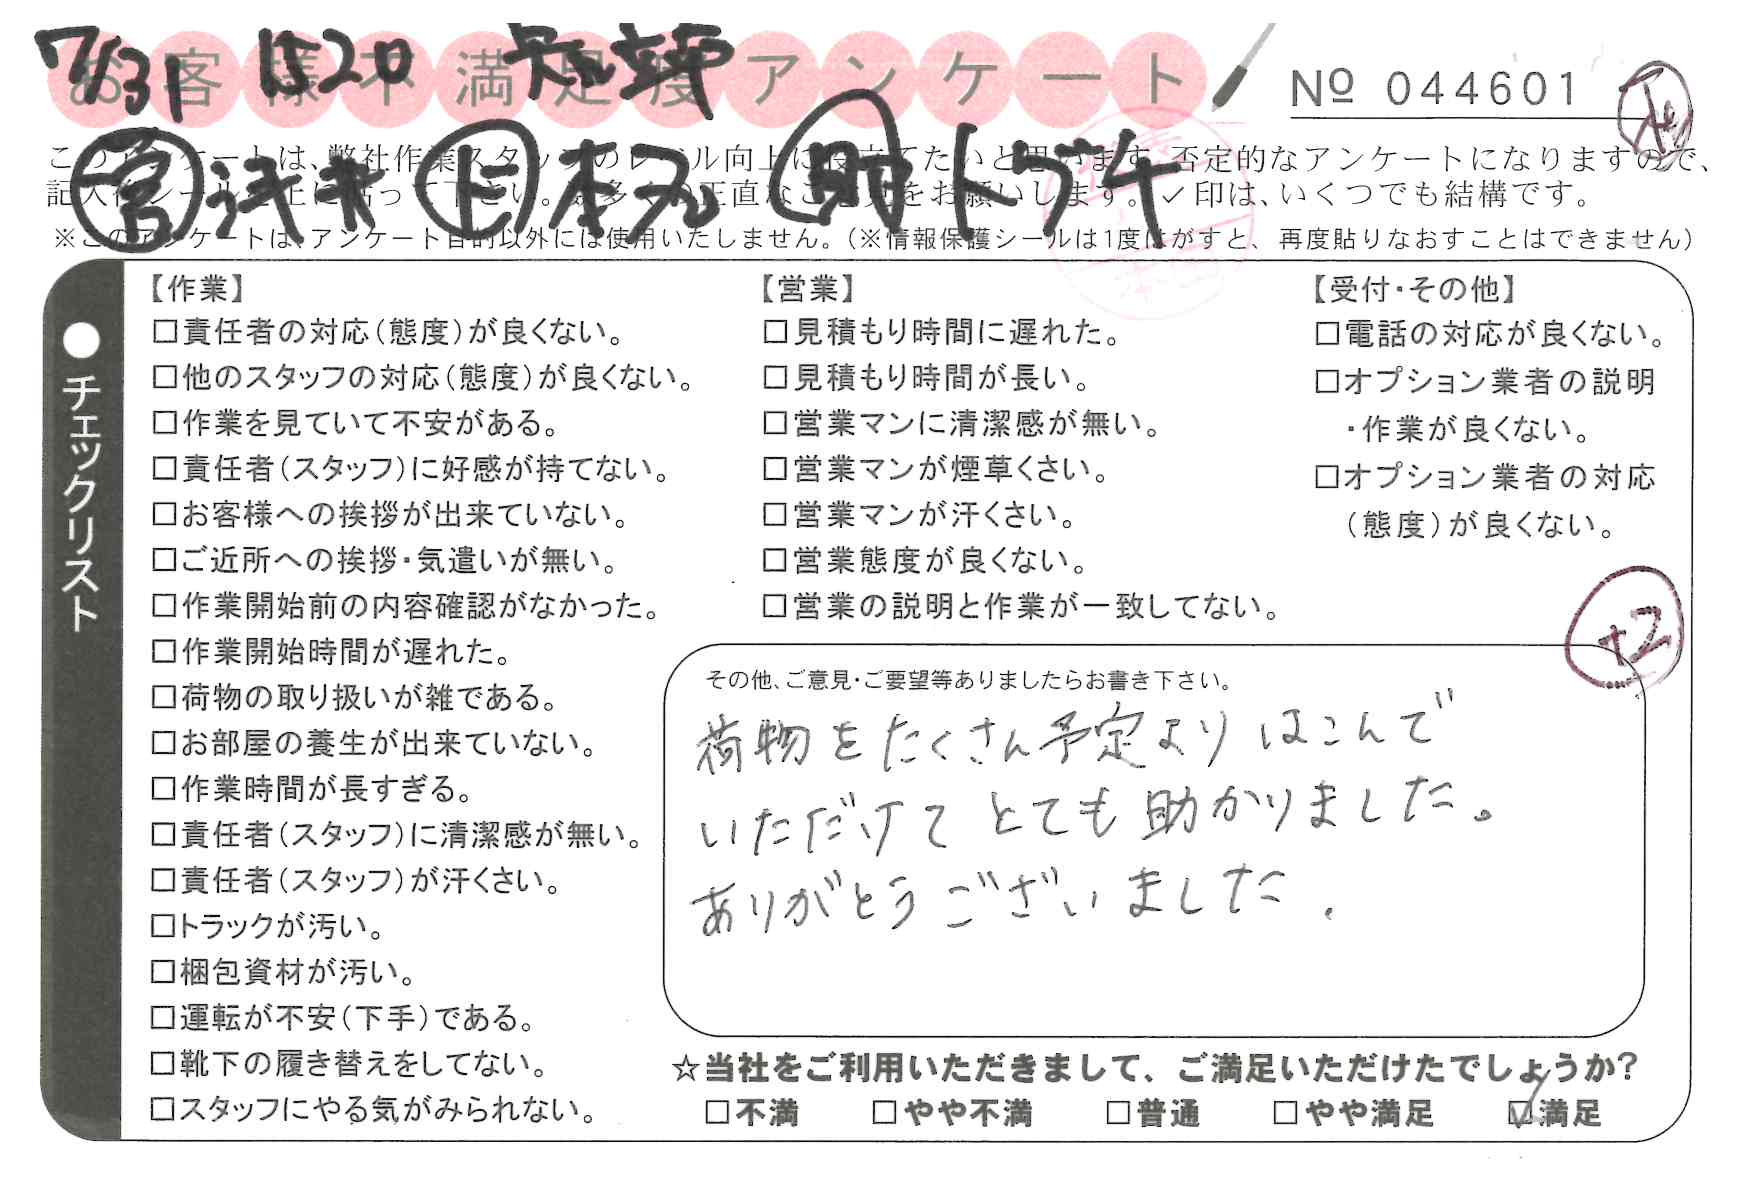 7/31 1520 足立
お客様不満足度アンケート
No 044601
このアンケートは、弊社作業スタッフのレベル向上に役立てたいと思います。否定的なアンケートになりますので、
記入後シールを上に貼って下さい。数多くの正直なご意見をお願いします。✓印は、いくつでも結構です。
営 浅井 上 本元 助 トブチ
※このアンケートは、アンケート目的以外には使用いたしません。(※情報保護シールは1度はがすと、再度貼りなおすことはできません)
●チェックリスト
【作業】
□責任者の対応(態度)が良くない。
□他のスタッフの対応(態度)が良くない。
□作業を見ていて不安がある。
□責任者(スタッフ)に好感が持てない。
□お客様への挨拶が出来ていない。
□ご近所への挨拶・気遣いが無い。
□作業開始前の内容確認がなかった。
□作業開始時間が遅れた。
□荷物の取り扱いが雑である。
□お部屋の養生が出来ていない。
□作業時間が長すぎる。
□責任者(スタッフ)に清潔感が無い。
□責任者(スタッフ)が汗くさい。
□トラックが汚い。
□梱包資材が汚い。
□運転が不安(下手)である。
□靴下の履き替えをしてない。
□スタッフにやる気がみられない。
【営業】
□見積もり時間に遅れた。
□見積もり時間が長い。
□営業マンに清潔感が無い。
□営業マンが煙草くさい。
□営業マンが汗くさい。
□営業態度が良くない。
□営業の説明と作業が一致してない。
【受付・その他】
□電話の対応が良くない。
□オプション業者の説明
・作業が良くない。
□オプション業者の対応
(態度)が良くない。
+2
その他、ご意見・ご要望等ありましたらお書き下さい。
荷物をたくさん予定よりはこんで
いただけてとても助かりました。
ありがとうございました.
☆当社をご利用いただきまして、ご満足いただけたでしょうか?
□不満 □やや不満 □普通 □やや満足 ☑満足